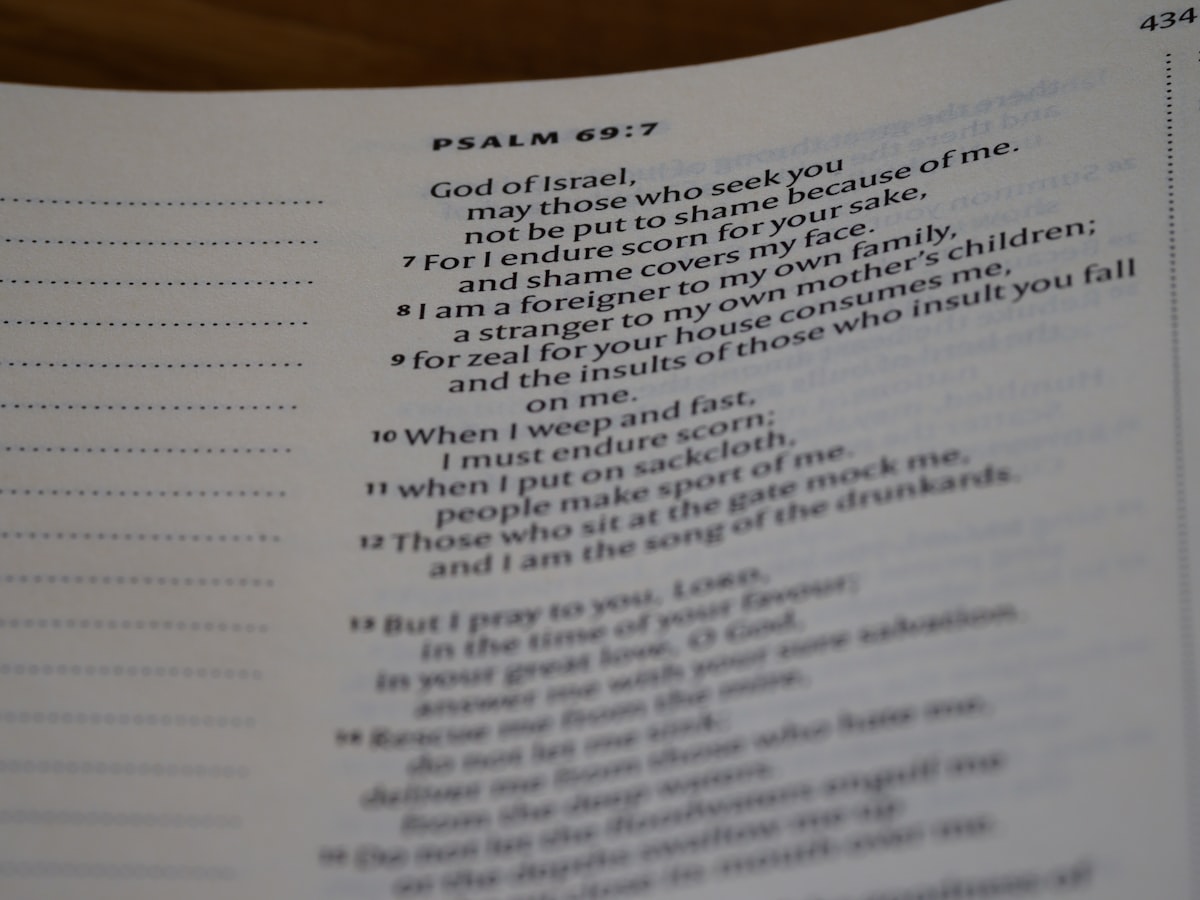 434
PSALM 69:7
God of Israel,
may those who seek you
not be put to shame because of me.
7 For I endure scorn for your sake,
and shame covers my face.
8 I am a foreigner to my own family,
a stranger to my own mother’s children;
9 for zeal for your house consumes me,
and the insults of those who insult you fall
on me.
10 When I weep and fast,
I must endure scorn;
11 when I put on sackcloth,
people make sport of me.
12 Those who sit at the gate mock me,
and I am the song of the drunkards.
13 But I pray to you, LORD,
in the time of your favour;
in your great love, O God,
answer me with your sure salvation.
14 Rescue me from the mire,
do not let me sink;
deliver me from those who hate me,
from the deep waters.
15 Do not let the floodwaters engulf me
or the depths swallow me up